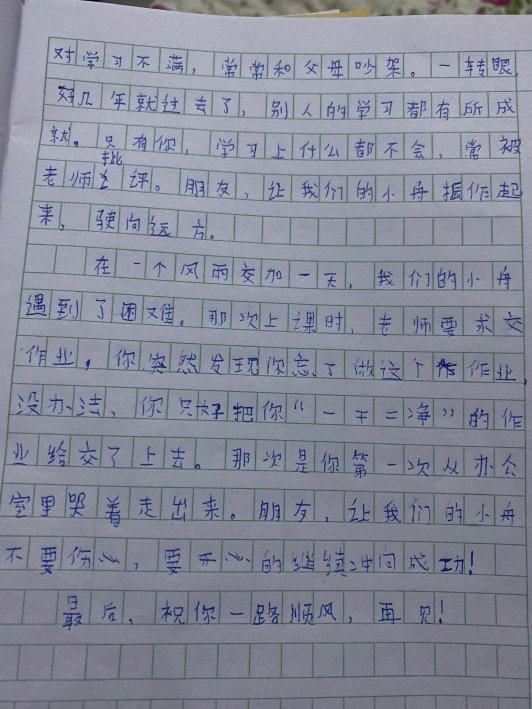 对学习不满，常常和父母吵架。一转眼，
好几年就过去了，别人的学习都有所成
就。只有你，学习上什么都不会，常被
老师批评。朋友，让我们的小舟振作起
来，驶向远方。
在一个风雨交加一天，我们的小舟
遇到了困难。那次上课时，老师要求交
作业，你突然发现你忘了做这个作业，
没办法，你只好把你“一干二净”的作
业给交了上去。那次是你第一次从办公
室里哭着走出来。朋友，让我们的小舟
不要伤心，要开心的继续冲向成功！
最后，祝你一路顺风，再见！